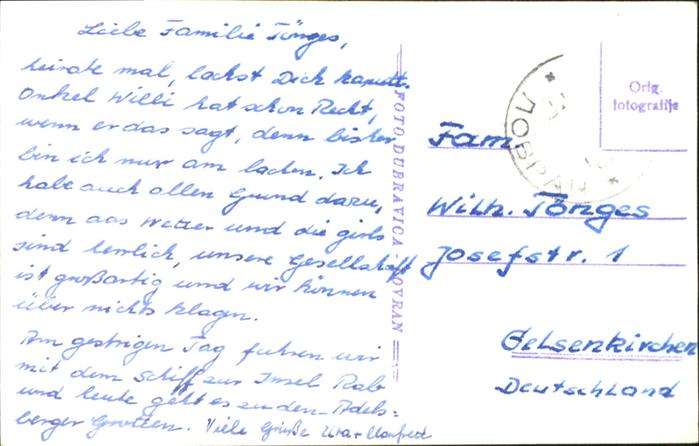 Liebe Familie Tönges,
heirate mal, lachst Dich kaputt.
Onkel Willi hat schon Recht,
wenn er das sagt, denn bisher
bin ich nur am lachen. Ich
habe auch allen Grund dazu,
denn das Wetter und die girls
sind herrlich, unsere Gesellschaft
ist großartig und wir können
über nichts klagen.
Am gestrigen Tag fuhren wir
mit dem Schiff zur Insel Rab
und heute geht es zu den Adels=
berger Grotten. Viele Grüße Manfred
FOTO DUBRAVICA LOVRAN
Orig.
fotografije
Fam
Wilh. Tönges
Josefstr. 1
Gelsenkirchen
Deutschland